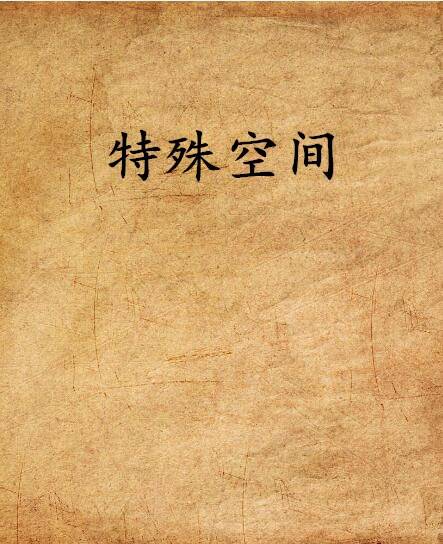 特殊空间